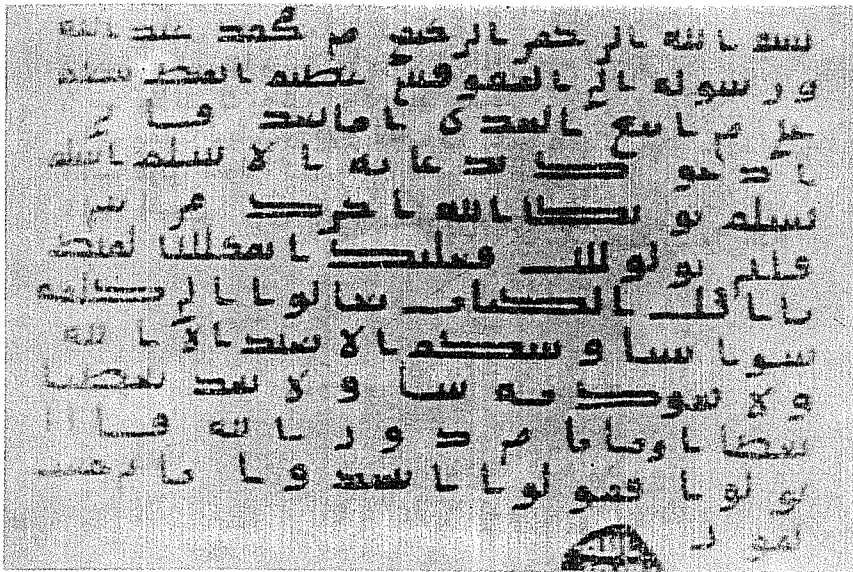 بسم الله الرحمن الرحيم من محمد عبد الله
ورسوله الى المقوقس عظيم القبط سلام
على من اتبع الهدى اما بعد فا نى
ادعوك بدعاية الاسلام اسلم
تسلم يوتك الله اجرك مر تين
فان توليت فعليك القبط
يا اهل الكتاب تعالوا الى كلمة
سوا بيننا وبينكم الا نعبد الا الله
ولا نشرك به شيا ولا يتخذ بعضنا
بعضا اربابا من دون الله فان
تولوا فقولوا اشهدوا بانا مسـ
لمون